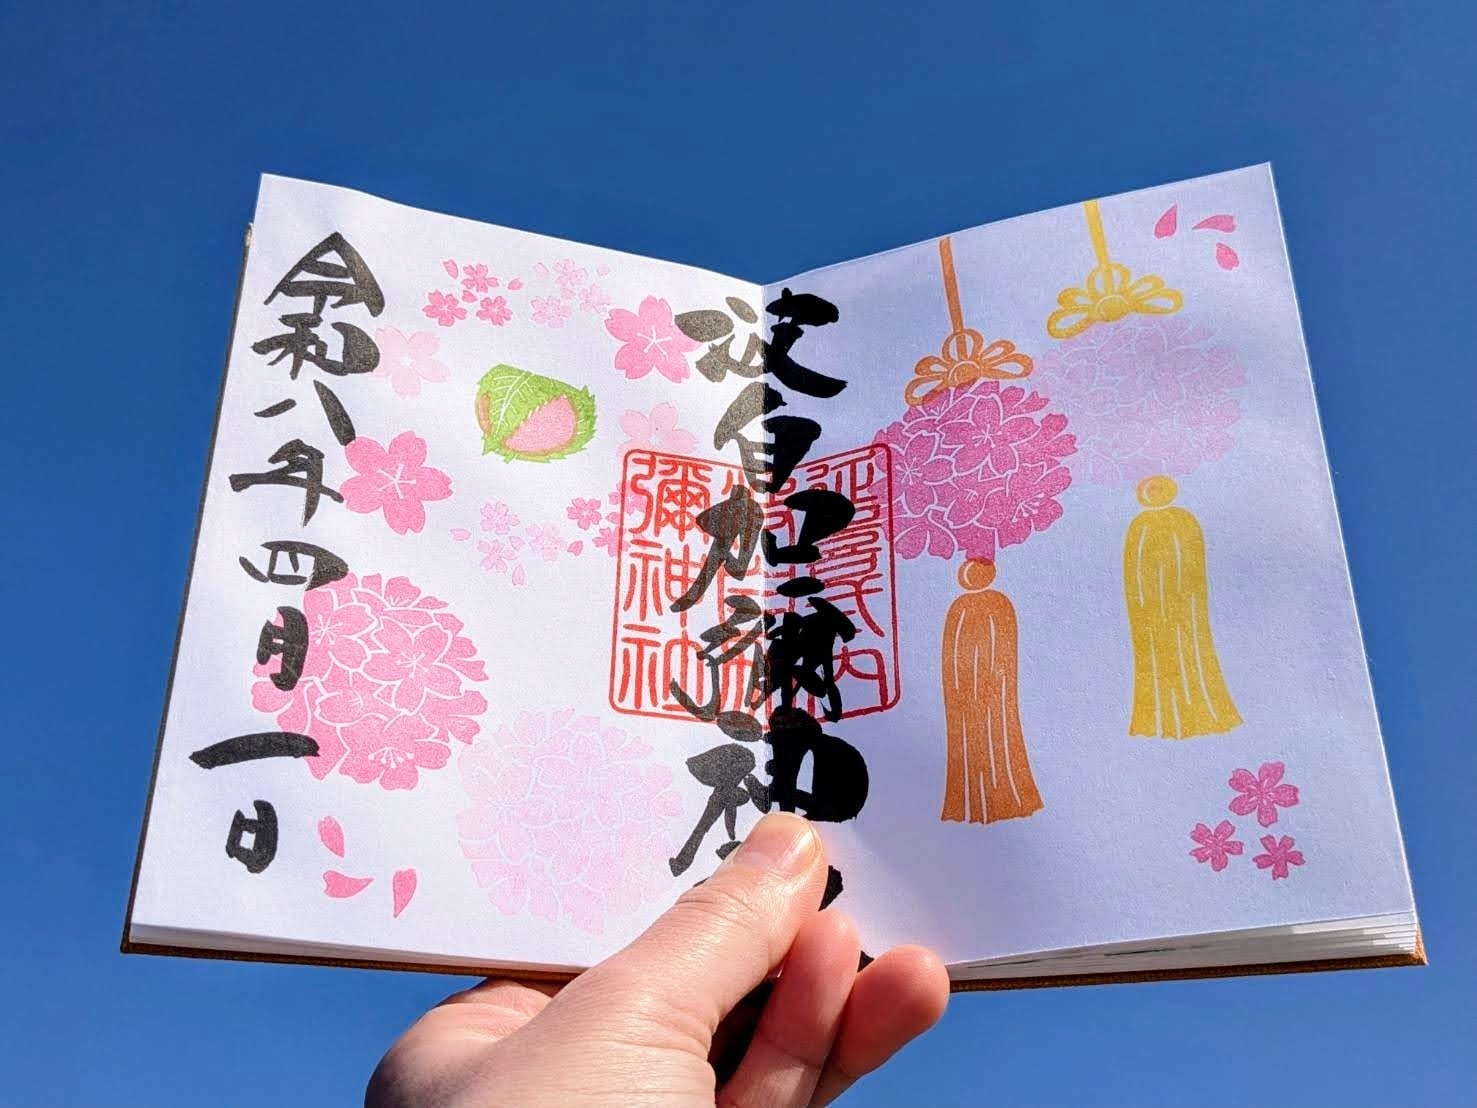 波自加彌神
延喜式内
波自加
彌神社
令和八年四月一日